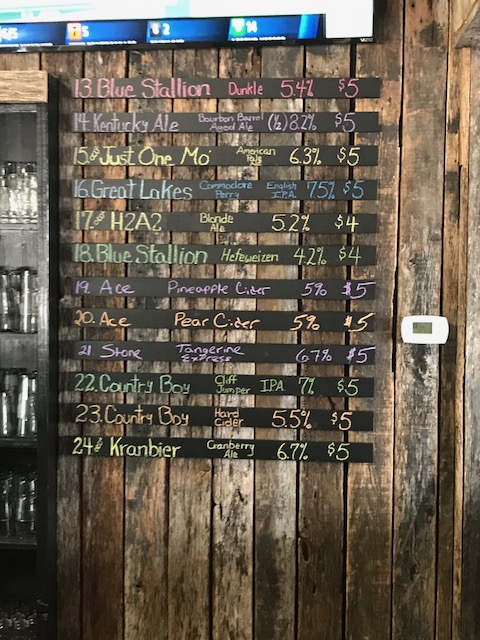 5
2
14
13. Blue Stallion Dunkle 5.4% $5
14. Kentucky Ale Bourbon Barrel Aged Ale (½) 8.2% $5
15. Just One Mo' American Pale 6.3% $5
16. Great Lakes Commodore Perry English IPA 7.5% $5
17. H2A2 Blonde Ale 5.2% $4
18. Blue Stallion Hefeweizen 4.2% $4
19. Ace Pineapple Cider 5% $5
20. Ace Pear Cider 5% $5
21 Stone Tangerine Express 6.7% $5
22. Country Boy Cliff Jumper IPA 7% $5
23. Country Boy Hard Cider 5.5% $5
24 Kranbier Cranberry Ale 6.7% $5